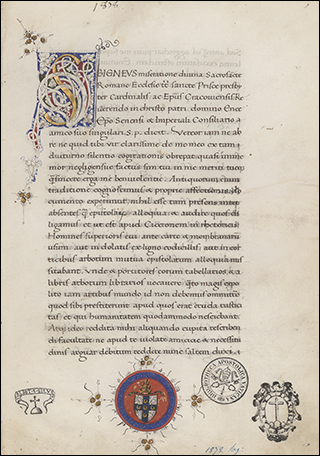 1878
ZBIGNEVS miseratione divina Sacrosancte
Romane Ecclesie tt. sancte Prisce presby
ter Cardinalis & Epus Cracouiensis Re
uerendo in christo patri domino Enee
Epo Senensi & Imperiali Consiliario &
amico suo singulari S. p. dicit. Vereor iam ne ab
re ne quid tibi vir clarissime de meo ex tam
diuturno silentio cogitationis obrepat quasi immemor
negligensue factus sim tui in me meriti tuoq
traditione cognoscimus & proprie affectionis do
cumento experimur nihil esse tam presens inter
absentes q epistolaris alloquia & audire quos di
ligamus et ut est apud Ciceronem in rhetoricis
Homines superioris eui ante carte & membranarum
usum aut in dolatis ex ligno codicillis aut in cor
ticibus arborum mutua epistolarum alloquia mis
sitabant. Unde & portitores eorum tabellarios & a
libris arborum librarios vocauere
lito iam artibus mundo id non debemus omittere
quod sibi prestiterunt apud quos erat cruda rustici
tas et qui humanitatem quodammodo nesciebant
difacultate ne apud te uiolate amicicie & necessitu
dinis arguar debitum reddere nunc saltem duxi
1878